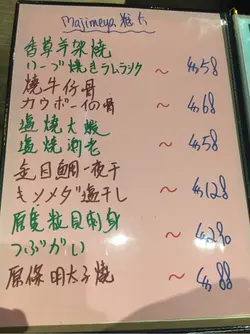 Majimeya 粒卡
香草羊架燒
ハーブ焼きラムラック ～ $58
燒牛仔骨
カウボーイの骨 ～ $68
塩燒大蝦
塩焼海老 ～ $58
金目鯛一夜干
キンメダイ塩干し ～ $128
原隻粒貝刺身
つぶがい ～ $290
原條明太子燒 ～ $88